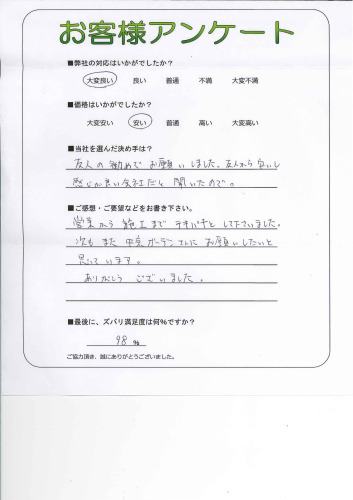 お客様アンケート
■弊社の対応はいかがでしたか？
大変良い 良い 普通 不満 大変不満
■価格はいかがでしたか？
大変安い 安い 普通 高い 大変高い
■当社を選んだ決め手は？
友人の勧めでお願いしました。友人から安いし
感じが良い会社だと聞いたので。
■ご感想・ご要望などをお書き下さい。
営業から施工までテキパキとして下さいました。
次もまた中央ガーデンさんにお願いしたいと
思っています。
ありがとうございました。
■最後に、ズバリ満足度は何％ですか？
98 %
ご協力頂き、誠にありがとうございました。